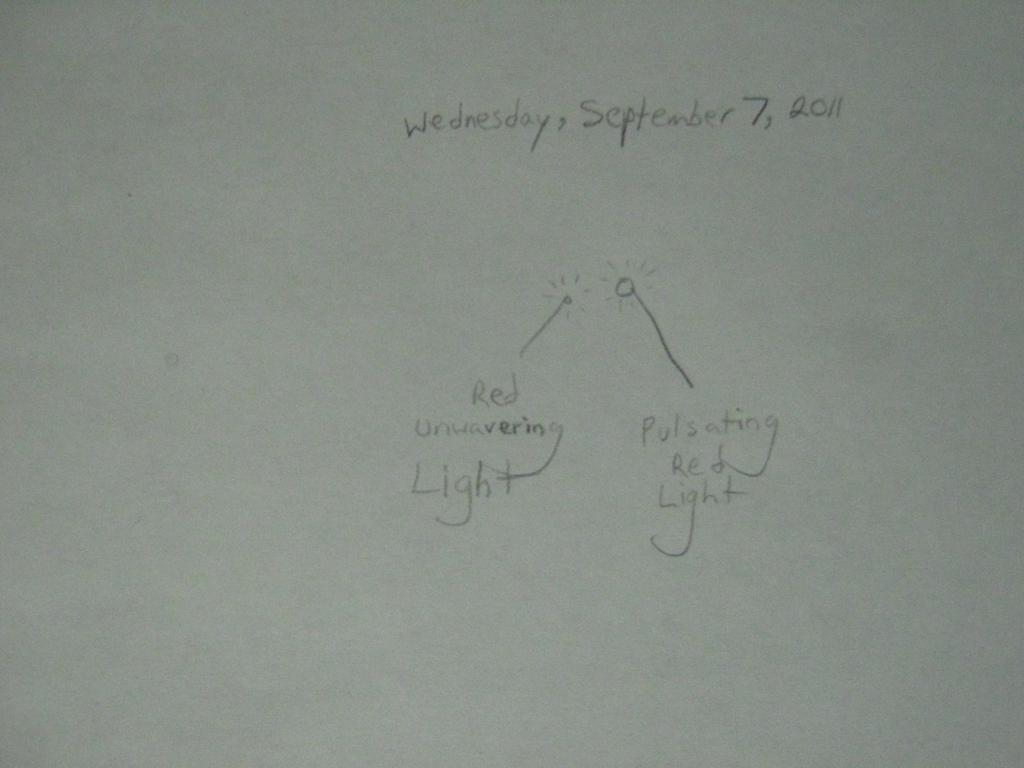 Wednesday, September 7, 2011
Red
Unwavering
Light
Pulsating
Red
Light